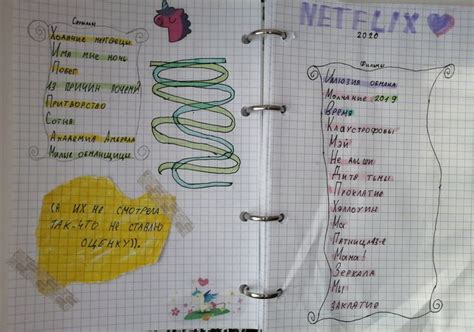 Сериалы
Ходячие мертвецы
Имя мне ночь
Побег
13 причин почему
Притворство
Сотня
Академия Амбрелла
Милые обманщицы
(Я их не смотрела
так-что не ставлю
оценку)).
NETFLIX
2020
Фильмы
Иллюзия обмана
Молчание 2019
Время
Клаустрофобы
Мэй
Не дыши
Дитя тьмы
Проклятие
Хэллоуин
Мы
Пятница 13-е
Мама!
Зеркала
Мы!
Заклятие